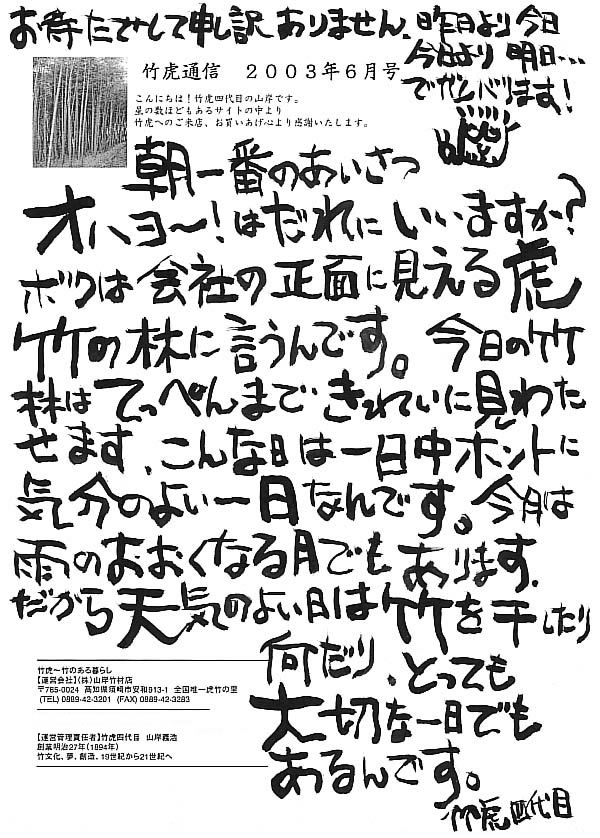 お待たせして申し訳ありません。昨日より今日
今日より明日…
でガンバリます！
竹虎通信　２００３年６月号
こんにちは！竹虎四代目の山岸です。
星の数ほどもあるサイトの中より
竹虎へのご来店、お買いあげ心より感謝いたします。
朝一番のあいさつ
オハヨ～！はだれにいいますか？
ボクは会社の正面に見える虎
竹の林に言うんです。今日の竹
林はてっぺんまできれいに見わた
せます、こんな日は一日中ホントに
気分のよい一日なんです。今月は
雨のおおくなる月でもあります。
だから天気のよい日は竹を干したり
何だり、とっても
大切な一日でも
あるんです。
竹虎四代目
竹虎～竹のある暮らし
【運営会社】(株)山岸竹材店
〒785-0024　高知県須崎市安和913-1　全国唯一虎竹の里
(TEL) 0889-42-3201　(FAX) 0889-42-3283
【運営管理責任者】竹虎四代目　山岸義浩
創業明治27年(1894年)
竹文化、夢、創造、19世紀から21世紀へ